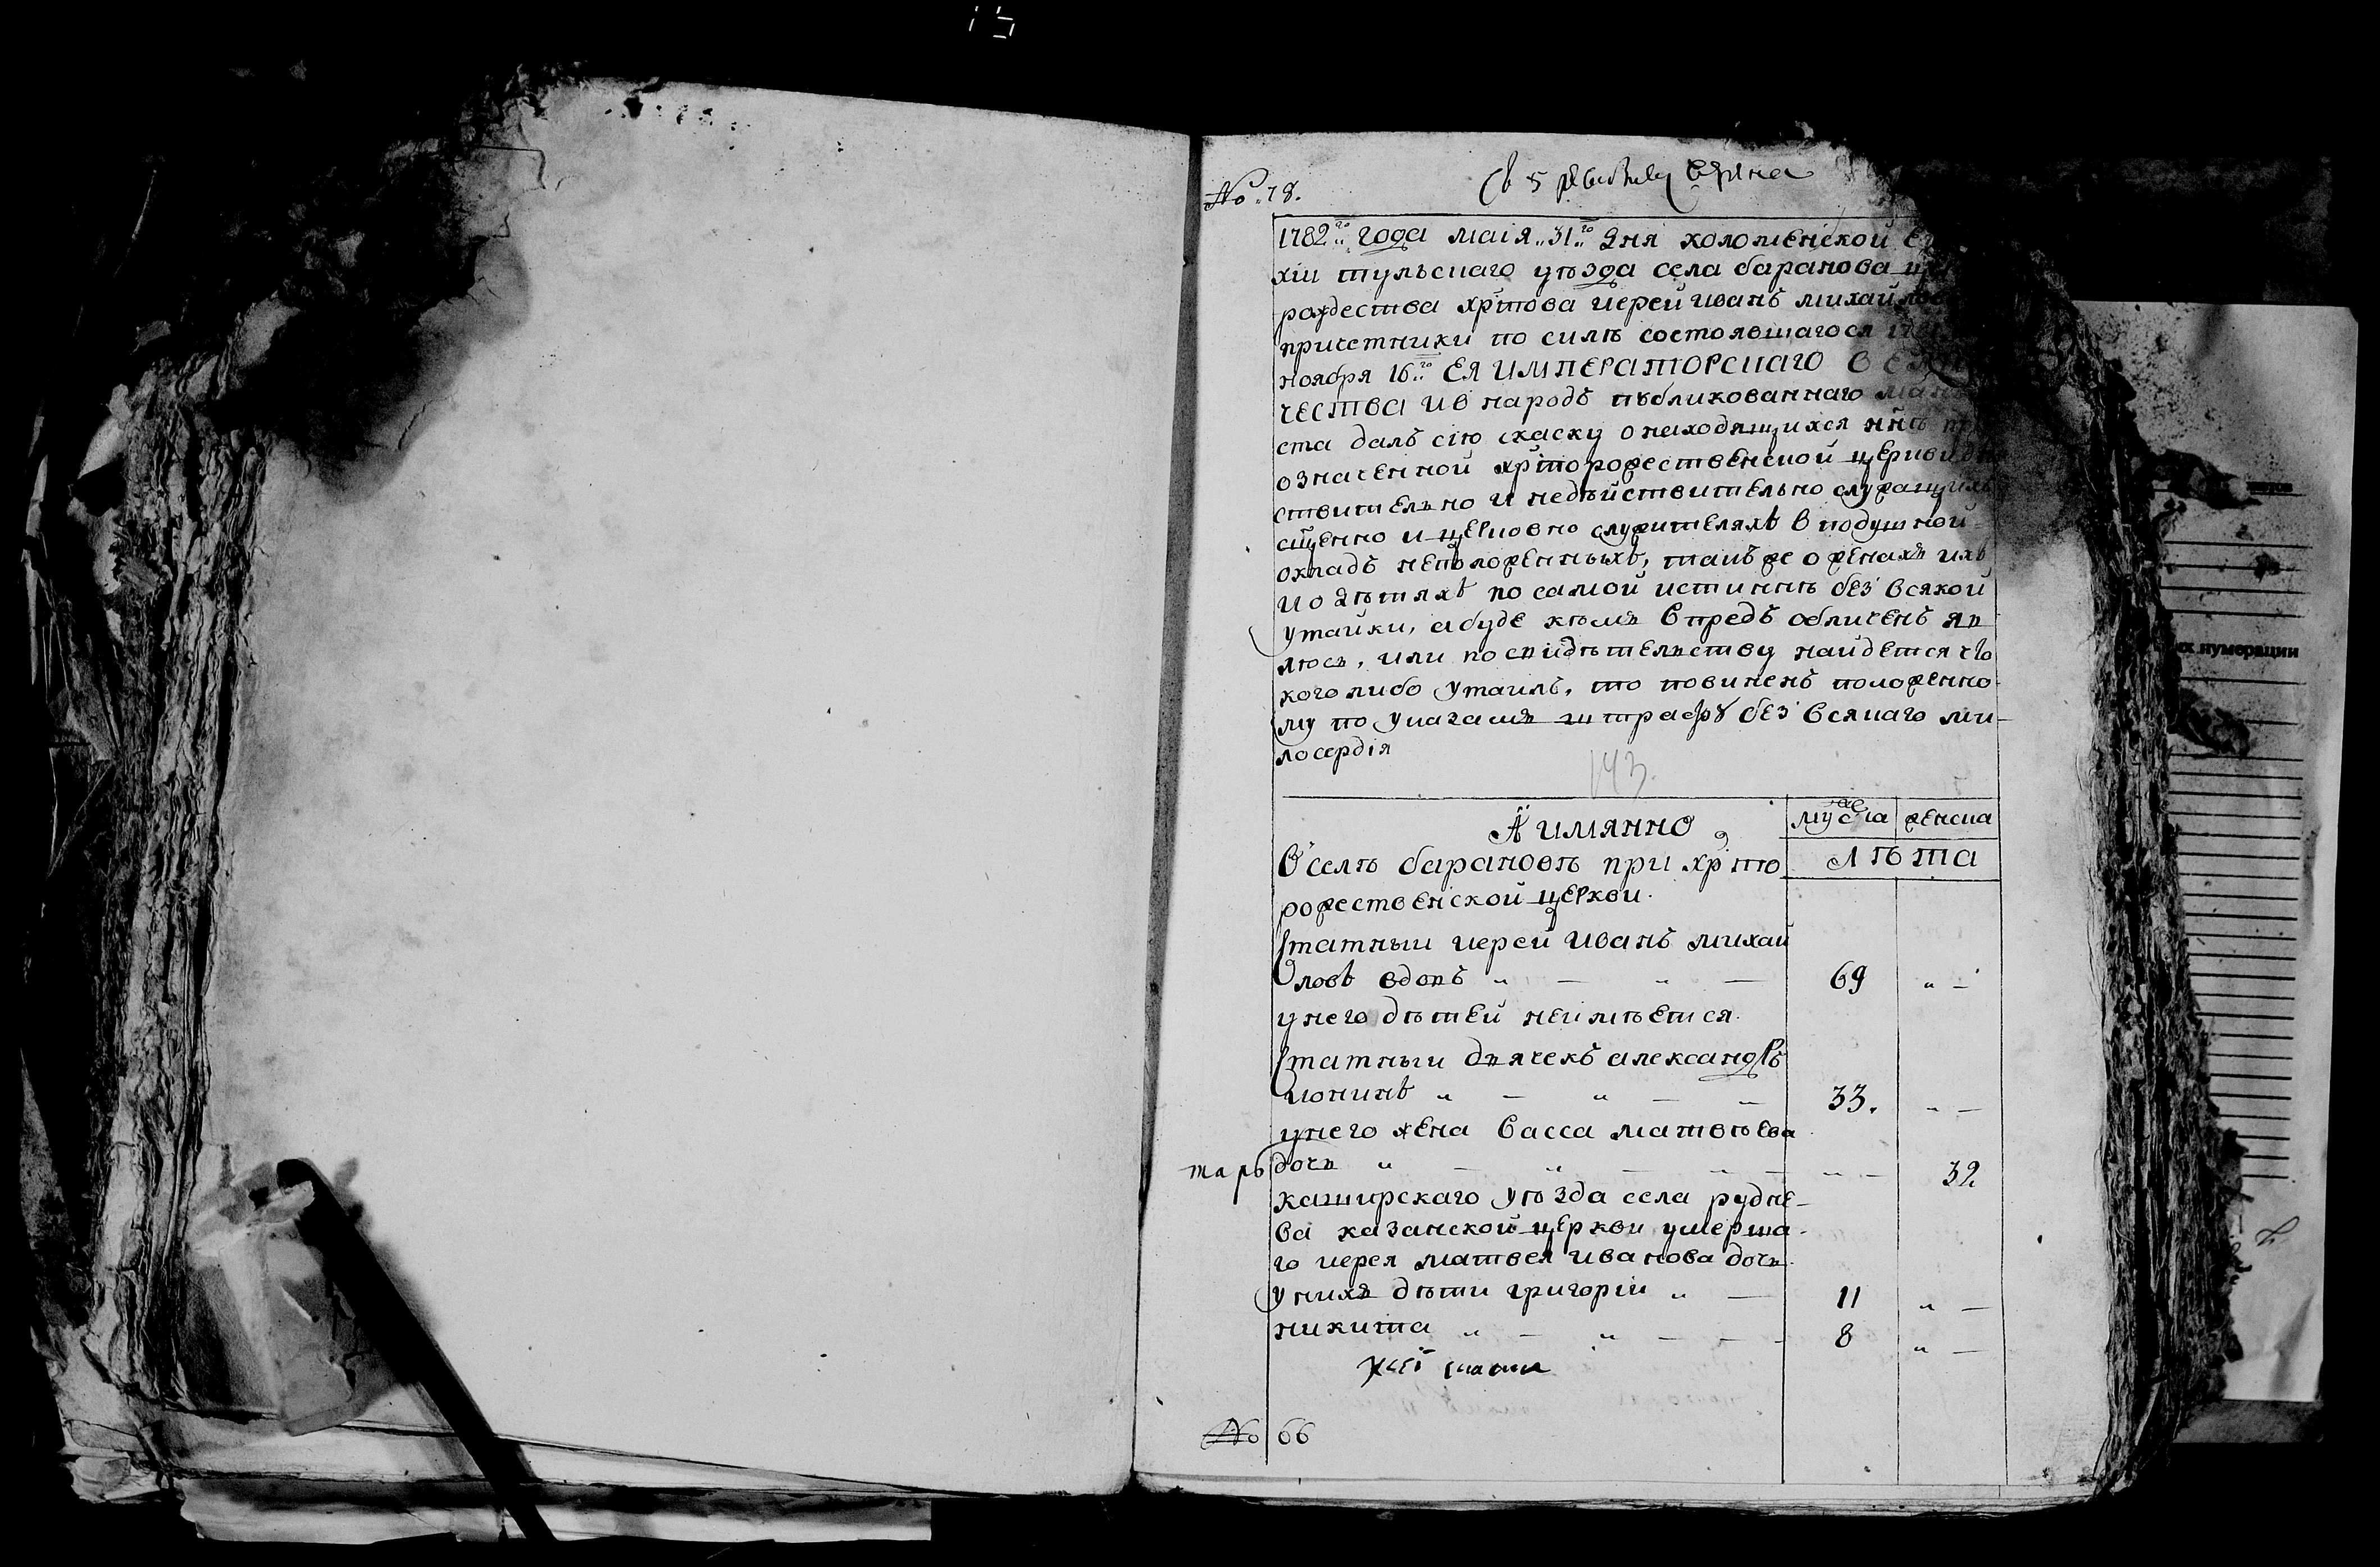 № 78.
1782го года маія 31го дня коломенской
хіи тульскаго уѣзда села баранова
рождества хрⷭ҇това иерей иванъ михай
причетники по силѣ состоявшагося
ноября 16го ЕЯ ИМПЕРАТОРСКАГО
ЧЕСТВА и в народъ публикованнаго
ста далъ сію скаску о находящихся ннѣ
означенной хрⷭ҇торожественской церкви
ствительно и недѣйствительно служащихъ
сщенно и церковно служителяхъ в подушной
окладъ неположенныхъ, такъ же о женахъ ихъ
и о дѣтяхъ по самой истиннѣ без всякой
утайки, а буде кѣмъ впредъ обличенъ яв
люсь, или по свидѣтельству найдется что
кого либо утаилъ, то повиненъ положенно
му по указамъ штрафу без всякаго ми-
лосердія
143.
А имянно
мужска женска
лѣта
В селѣ барановѣ при хрⷭ҇то
рожественской церкви.
статныи иерей иванъ михаи
ловъ вдовъ " — " — 69 " —
у него дѣтей неимѣется.
статныи дьячекъ александръ
ионинъ " — " — — 33. " —
у него жена васса матвѣева
дочь " — " — " — " — 32
каширскаго уѣзда села рудне-
ва казанской церкви умерша-
го иерея матвея иванова дочь
у нихъ дѣти григоріи " — 11 " —
никита " — " — — - 8 " —
№ 66